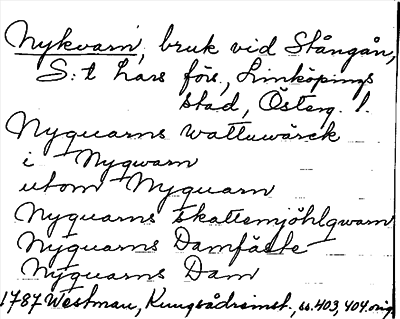 Nykvarn, bruk vid Stångån,
S:t Lars förs., Linköpings
stad, Österg. l.
Nyquarns wattuwärck
i Nygwarn
utom Nyquarn
Nyquarns skattemjöhlqwarn
Nyquarns Damfäste
Nyquarns Dam
1787 Westman, Kungsådreinst., ss. 403, 404. orig.